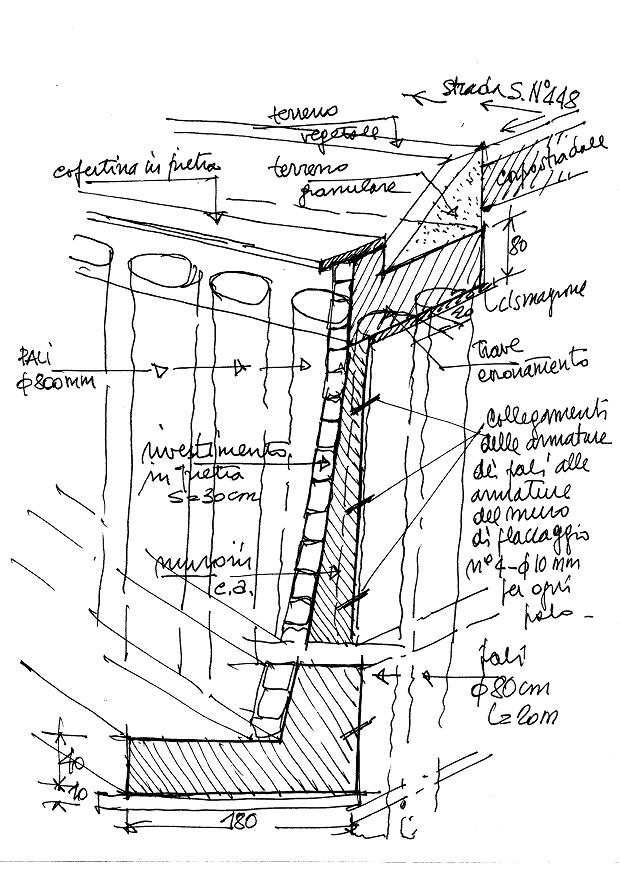 strada S. N° 448
terreno
vegetale
copertina in pietra
terreno
granulare
80
cls magrone
20
PALI
φ 800 mm
trave
collegamenti
delle armature
dei pali alle
armature
del muro
di placcaggio
n° 4 - φ 10 mm
per ogni
palo -
rivestimento
in pietra
S = 30 cm
muro in
c.a.
pali
φ 80 cm
L = 20 m
40
10
180